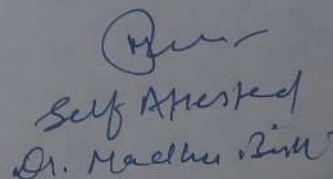 Self Attested
Dr. Madhu